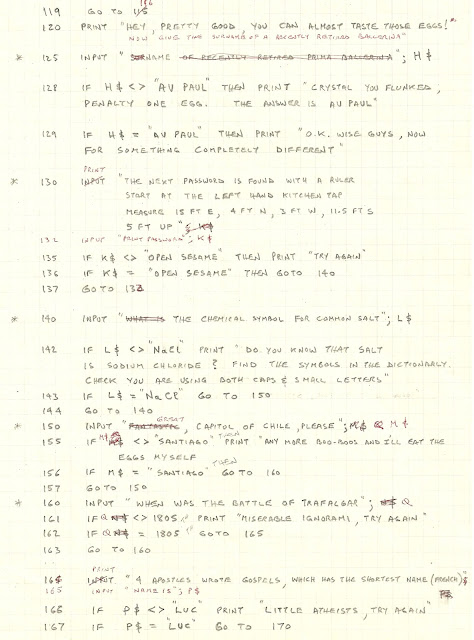 119 GO TO 115 116
120 PRINT "HEY, PRETTY GOOD, YOU CAN ALMOST TASTE THOSE EGGS!"
NOW GIVE THE SURNAME OF A RECENTLY RETIRED BALLERINA"
* 125 INPUT " SURNAME OF RECENTLY RETIRED PRIMA BALLERINA"; H$
128 IF H$ <> "AV PAUL" THEN PRINT "CRYSTAL YOU FLUNKED,
PENALTY ONE EGG. THE ANSWER IS AV PAUL"
129 IF H$ = "AV PAUL" THEN PRINT "O.K. WISE GUYS, NOW
FOR SOMETHING COMPLETELY DIFFERENT"
PRINT
* 130 INPUT "THE NEXT PASSWORD IS FOUND WITH A RULER
START AT THE LEFT HAND KITCHEN TAP
MEASURE 15 FT E, 4 FT N, 3 FT W, 11.5 FT S
5 FT UP"; K$
132 INPUT "PRINT PASSWORD"; K$
135 IF K$ <> "OPEN SESAME" THEN PRINT "TRY AGAIN"
136 IF K$ = "OPEN SESAME" THEN GOTO 140
137 GO TO 132
* 140 INPUT "WHAT IS THE CHEMICAL SYMBOL FOR COMMON SALT"; L$
142 IF L$ <> "NaCl" PRINT "DO YOU KNOW THAT SALT
IS SODIUM CHLORIDE? FIND THE SYMBOLS IN THE DICTIONARY.
CHECK YOU ARE USING BOTH CAPS & SMALL LETTERS"
143 IF L$ = "NaCl" GO TO 150
144 GO TO 140
GREAT
* 150 INPUT "FANTASTIC, CAPITOL OF CHILE, PLEASE"; M$
155 IF M$ <> "SANTIAGO" THEN PRINT "ANY MORE BOO-BOOS AND I'LL EAT THE
EGGS MYSELF
THEN
156 IF M$ = "SANTIAGO" GO TO 160
157 GO TO 150
* 160 INPUT "WHEN WAS THE BATTLE OF TRAFALGAR"; N$ Q
161 IF Q N$ <> 1805 PRINT "MISERABLE IGNORAMI, TRY AGAIN"
162 IF Q N$ = 1805 GOTO 165
163 GO TO 160
PRINT
164 INPUT "4 APOSTLES WROTE GOSPELS, WHICH HAS THE SHORTEST NAME (FRENCH)
165 INPUT "NAME IS"; P$ P$
166 IF P$ <> "LUC" PRINT "LITTLE ATHEISTS, TRY AGAIN"
167 IF P$ = "LUC" GO TO 170